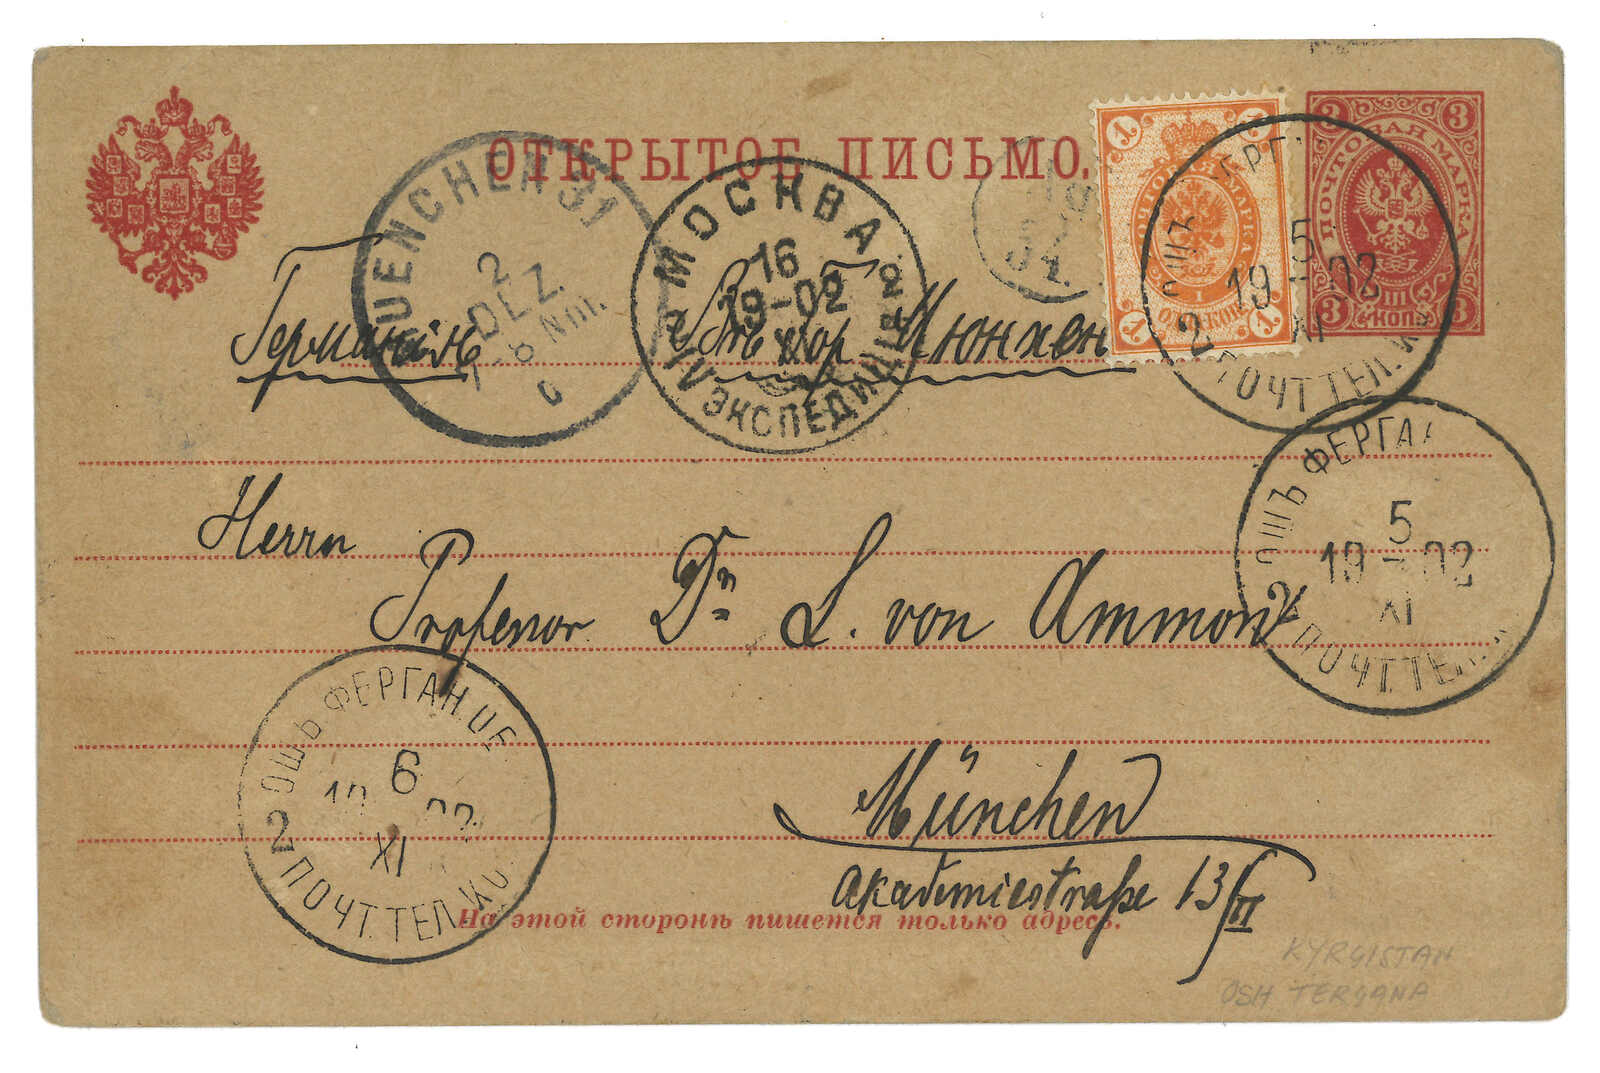 ОТКРЫТОЕ ПИСЬМО.
ПОЧТОВАЯ МАРКА
3 3
3 III 3
КОП.
ПОЧТОВАЯ МАРКА
1 1
1 I 1
MUENCHEN 31
2
DEZ.
7-8 Nm.
МОСКВА
16
19-02
XI
IV ЭКСПЕДИЦІЯ
ФЕРГ
5
19-02
XI
2 ПОЧТ.ТЕЛ.К
Германія Въ гор Мюнхен
ОШЪ ФЕРГА
5
19-02
XI
2 ПОЧТ.ТЕЛ.
Herrn
Professor Dr. L. von Ammon
ОШЪ ФЕРГАН.ОБ
6
XI
2 ПОЧТ.ТЕЛ.КО
München
Akademiestraße 13/II
На этой сторонѣ пишется только адресъ.
KYRGISTAN
OSH TERGANA